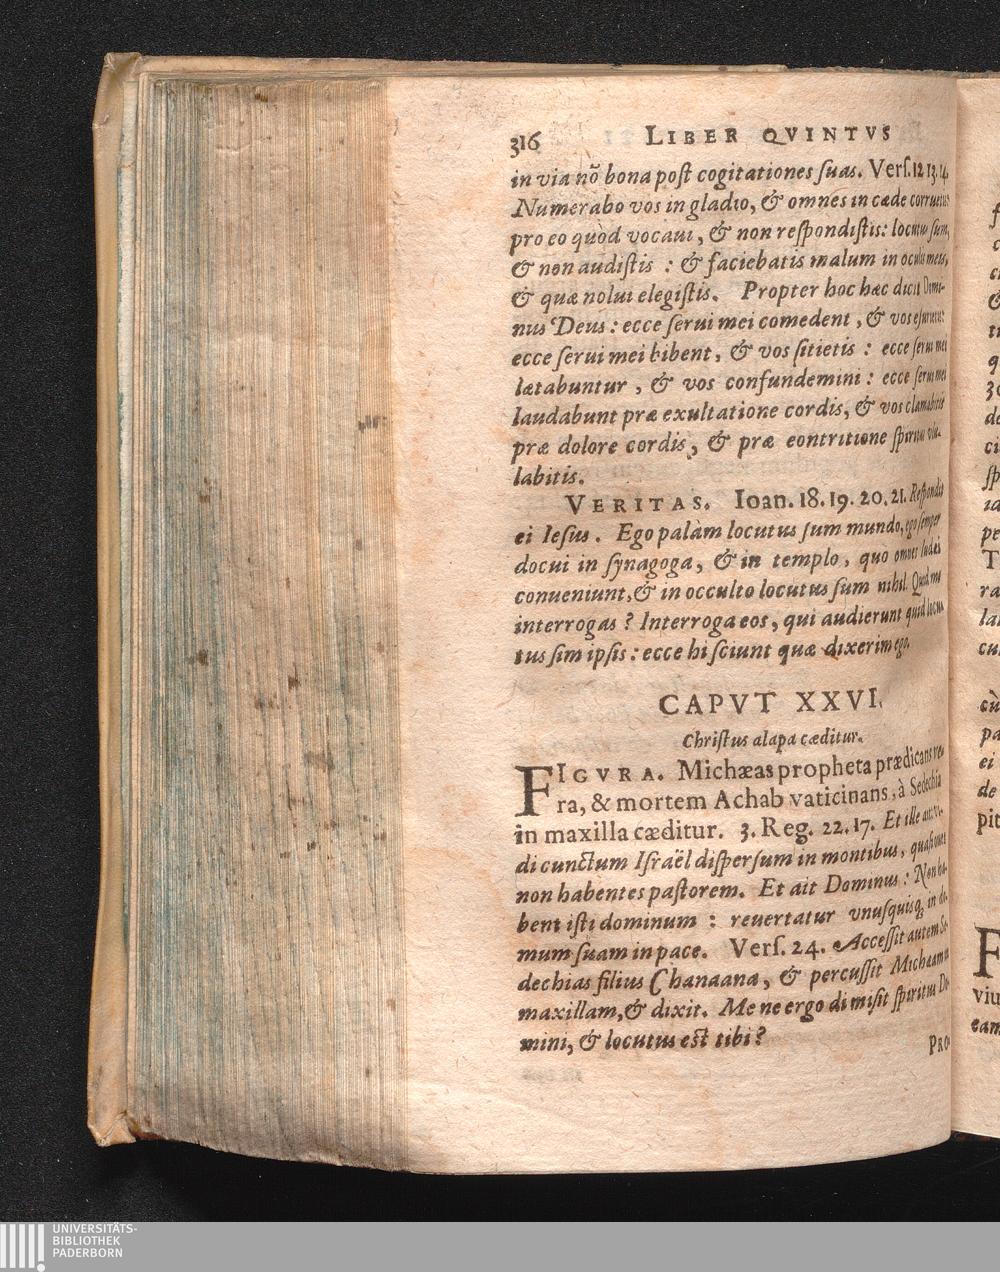 316 LIBER QVINTVS
in via nõ bona post cogitationes suas. Vers. 12 13. 14.
Numerabo vos in gladio, & omnes in cæde corruetis
pro eo quòd vocaui, & non respondistis: locutus sum,
& non audistis : & faciebatis malum in oculis meis,
& quæ nolui elegistis. Propter hoc hæc dicit Domi-
nus Deus : ecce serui mei comedent, & vos esurietis:
ecce serui mei bibent, & vos sitietis : ecce serui mei
lætabuntur , & vos confundemini : ecce serui mei
laudabunt præ exultatione cordis, & vos clamabitis
præ dolore cordis, & præ eontritione spiritus vlu-
labitis.
VERITAS. Ioan. 18. 19. 20. 21. Respondit
ei Iesus. Ego palàm locutus sum mundo, ego semper
docui in synagoga, & in templo, quo omnes Iudæi
conueniunt, & in occulto locutus sum nihil. Quid me
interrogas? Interroga eos, qui audierunt quid locu-
tus sim ipsis : ecce hi sciunt quæ dixerim ego.
CAPVT XXVI.
Christus alapa cæditur.
FIGVRA. Michæas propheta prædicans ve-
ra, & mortem Achab vaticinans, à Sedechia
in maxilla cæditur. 3. Reg. 22. 17. Et ille ait: Vi-
di cunctum Israël dispersum in montibus, quasi oues
non habentes pastorem. Et ait Dominus : Non ha-
bent isti dominum : reuertatur vnusquisq; in do-
mum suam in pace. Vers. 24. Accessit autem Se-
dechias filius Chanaana, & percussit Michæam in
maxillam, & dixit. Me ne ergo dimisit spiritus Do-
mini, & locutus est tibi?
PRO-
UNIVERSITÄTS-
BIBLIOTHEK
PADERBORN